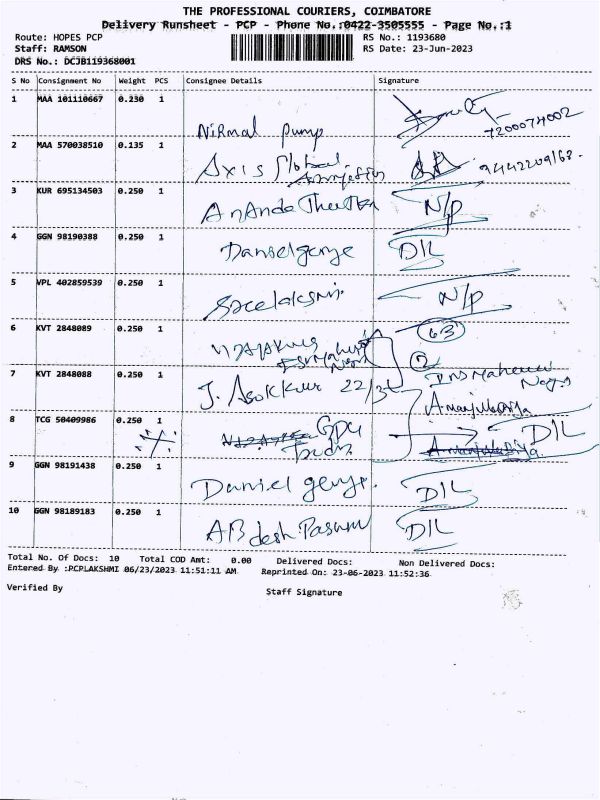 THE PROFESSIONAL COURIERS, COIMBATORE
Delivery Runsheet - PCP - Phone No.:0422-3505555 - Page No.:1
Route: HOPES PCP
RS No.: 1193680
Staff: RAMSON
RS Date: 23-Jun-2023
DRS No.: DCJB119368001
S No Consignment No Weight PCS Consignee Details Signature
1 MAA 101110667 0.230 1
Nirmal pump 7200074002
2 MAA 570038510 0.135 1
Axis Global
3 KUR 695134503 0.250 1
Ananda N/p
4 GGN 98190388 0.250 1
Danielgenge D/L
5 VPL 402859539 0.250 1
N/p
6 KVT 2848089 0.250 1
63
7 KVT 2848088 0.250 1
J. Asokkur 22/3
8 TCG 50409986 0.250 1
D/L
9 GGN 98191438 0.250 1
Daniel genge. D/L
10 GGN 98189183 0.250 1
D/L
Total No. Of Docs: 10 Total COD Amt: 0.00 Delivered Docs: Non Delivered Docs:
Entered By :PCPLAKSHMI 06/23/2023 11:51:11 AM Reprinted On: 23-06-2023 11:52:36
Verified By
Staff Signature